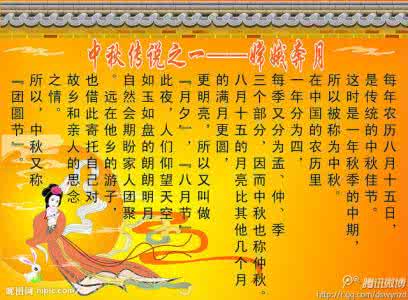 中秋传说之一——嫦娥奔月
每年农历八月十五日，
是传统的中秋佳节。
这时是一年秋季的中期，
所以被称为中秋。
在中国的农历里
一年分为四，
每季又分为孟、仲、季
三个部分，因而中秋也称仲秋。
八月十五的月亮比其他几个月
的满月更圆，
更明亮，所以又叫做
『月夕』，『八月节』
此夜，人们仰望天空
如玉如盘的朗朗明月
自然会期盼家人团聚
。远在他乡的游子，
也借此寄托自己对
故乡和亲人的思念
之情。
所以，中秋又称
『团圆节』。
昵图网 nipic.com
腾讯微博